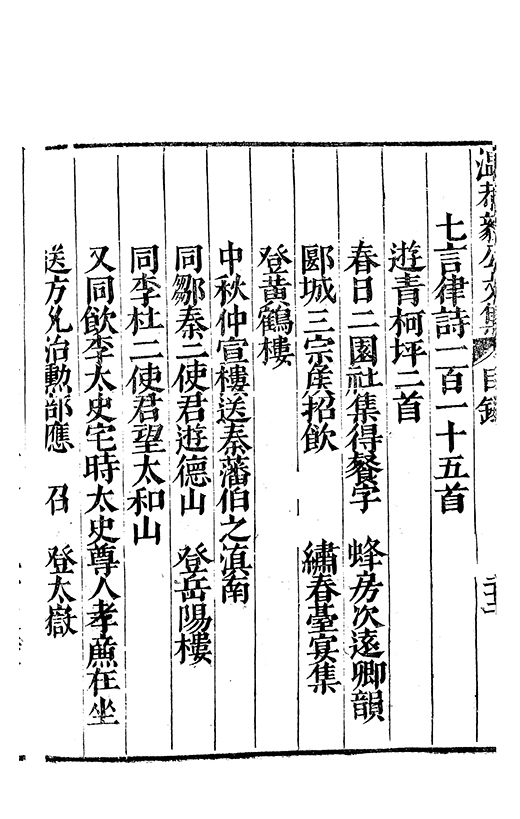 溫恭毅公文集 目錄 二十三
七言律詩一百一十五首
遊青柯坪二首
春日二園社集得餐字 蜂房次遠卿韻
郾城三宗矦招飲 繡春臺宴集
登黃鶴樓
中秋仲宣樓送秦藩伯之滇南
同鄒秦二使君遊德山 登岳陽樓
同李杜二使君望太和山
又同飲李太史宅時太史尊人孝廉在坐
送方允治勲部應 召 登太嶽